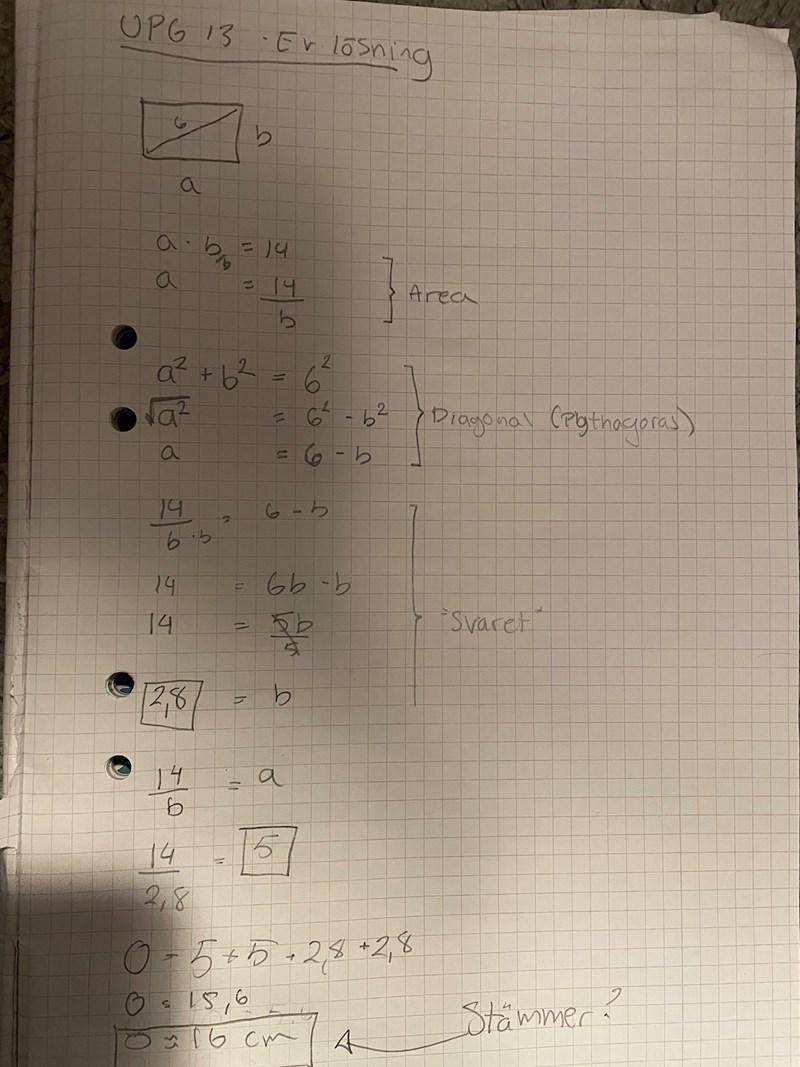 UPG 13 · Er lösning
6
b
a
a · b = 14
b
a = 14/b
} Area
a² + b² = 6²
√a² = 6² - b²
a = 6 - b
} Diagonal (Pythagoras)
14/b · b = 6 - b
14 = 6b - b
14 = 5b/5
} "Svaret"
2,8 = b
14/b = a
14/2,8 = 5
O = 5 + 5 + 2,8 + 2,8
O = 15,6
O ≈ 16 cm
Stämmer?